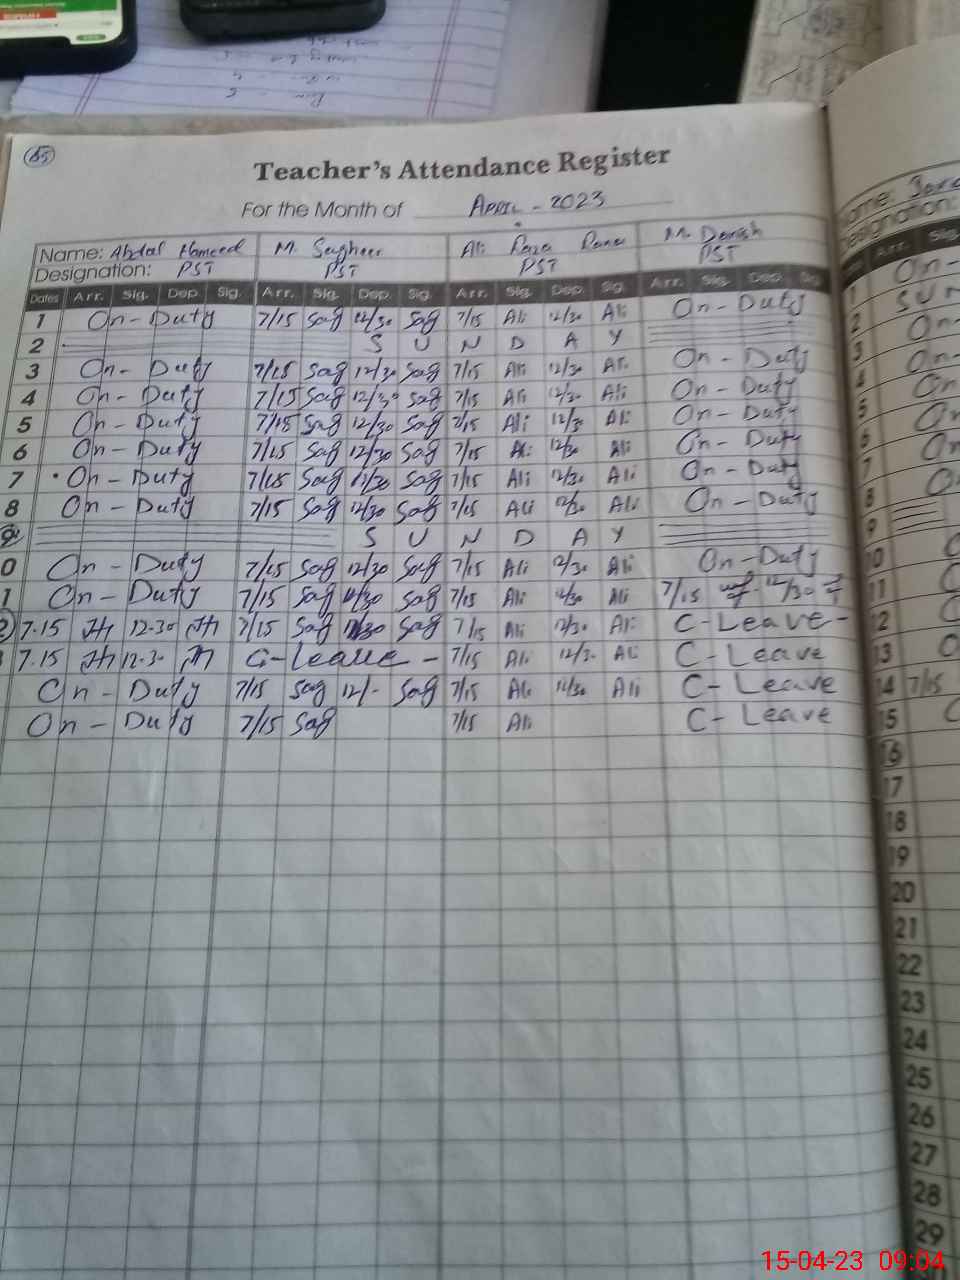 65
Teacher's Attendance Register
For the Month of APRIL - 2023
Name: Abdal Hameed M. Sagheer Ali Raza Rana M. Danish
Designation: PST PST PST PST
Dates Arr. Sig. Dep. Sig. Arr. Sig. Dep. Sig. Arr. Sig. Dep. Sig. Arr. Sig. Dep. Sig
1 On-Duty 7/15 Sag 12/30 Sag 7/15 Ali 12/30 Ali On-Duty
2 S U N D A Y
3 On-Duty 7/15 Sag 12/30 Sag 7/15 Ali 12/30 Ali On-Duty
4 On-Duty 7/15 Sag 12/30 Sag 7/15 Ali 12/30 Ali On-Duty
5 On-Duty 7/15 Sag 12/30 Sag 7/15 Ali 12/3 Ali On-Duty
6 On-Duty 7/15 Sag 12/30 Sag 7/15 Ali 12/30 Ali On-Duty
7 On-Duty 7/15 Sag 12/30 Sag 7/15 Ali 12/30 Ali On-Duty
8 On-Duty 7/15 Sag 12/30 Sag 7/15 Ali 12/30 Ali On-Duty
9 S U N D A Y
0 On-Duty 7/15 Sag 12/30 Sag 7/15 Ali 12/30 Ali On-Duty
1 On-Duty 7/15 Sag 12/30 Sag 7/15 Ali 12/30 Ali 7/15 12/30
2 7.15 12-30 7/15 Sag 12/30 Sag 7/15 Ali 12/30 Ali C-Leave-
7.15 12-30 C-Leave- 7/15 Ali 12/30 Ali C-Leave
On-Duty 7/15 Sag 12/- Sag 7/15 Ali 12/30 Ali C-Leave
On-Duty 7/15 Sag 7/15 Ali C-Leave
ame:
esignation:
Arr. Sig.
1 On-
2 SUN
3 On-
4 On-
5 On
6 On
7 On
8 On
9
10
11
12
13
14 7/15
15
16
17
18
19
20
21
22
23
24
25
26
27
28
29
15-04-23 09:04